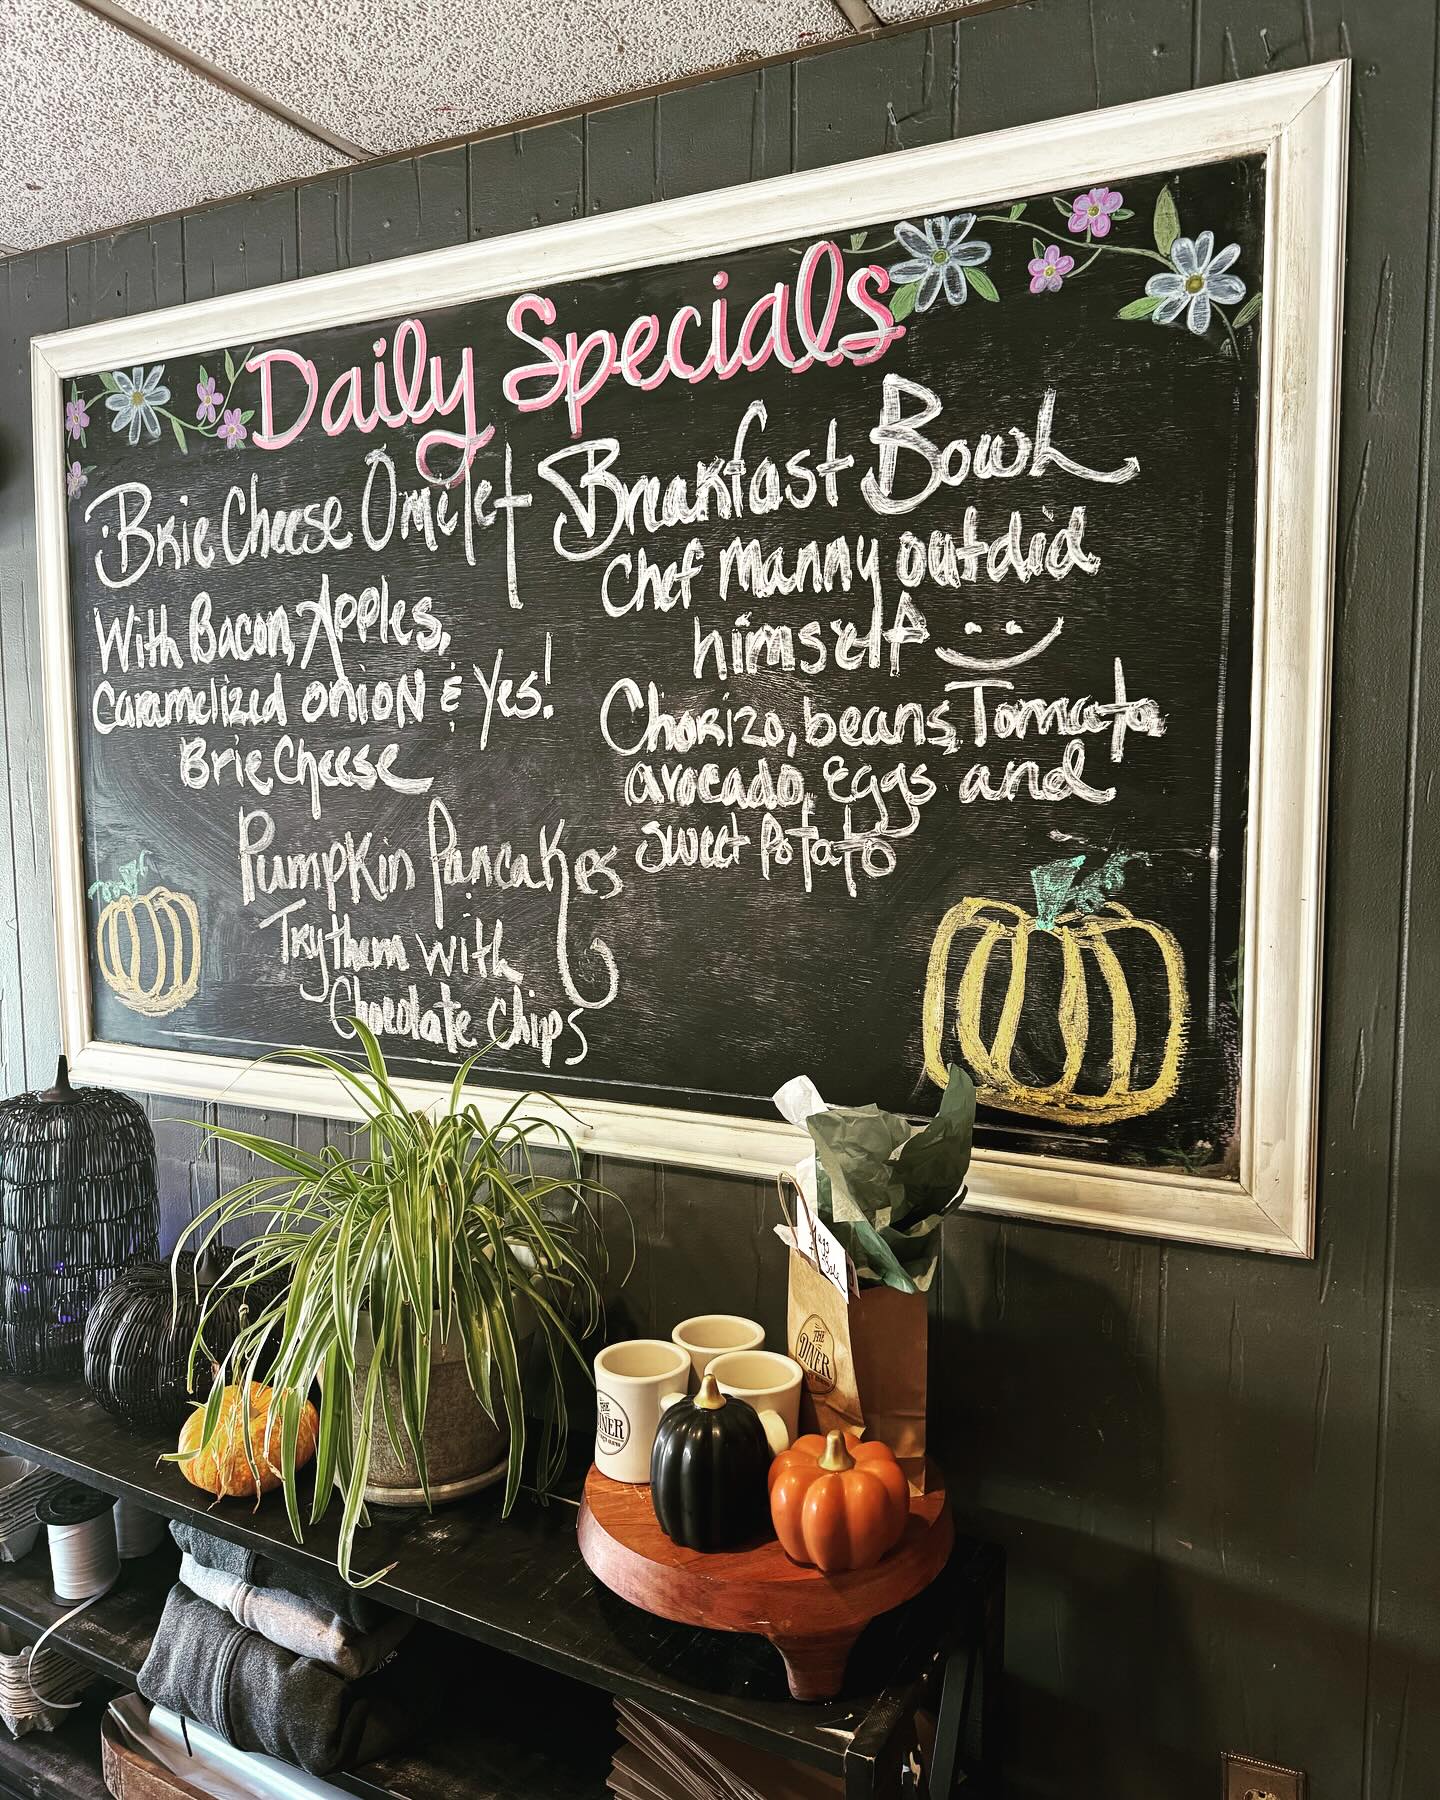 Daily Specials
Brie Cheese Omelet
With Bacon, Apples,
Caramelized onion & Yes!
Brie Cheese
Pumpkin Pancakes
Try them with
Chocolate Chips
Breakfast Bowl
Chef Manny outdid
himself
Chorizo, beans, Tomato,
avocado, Eggs and
sweet Potato
THE
DINER
THE
DINER